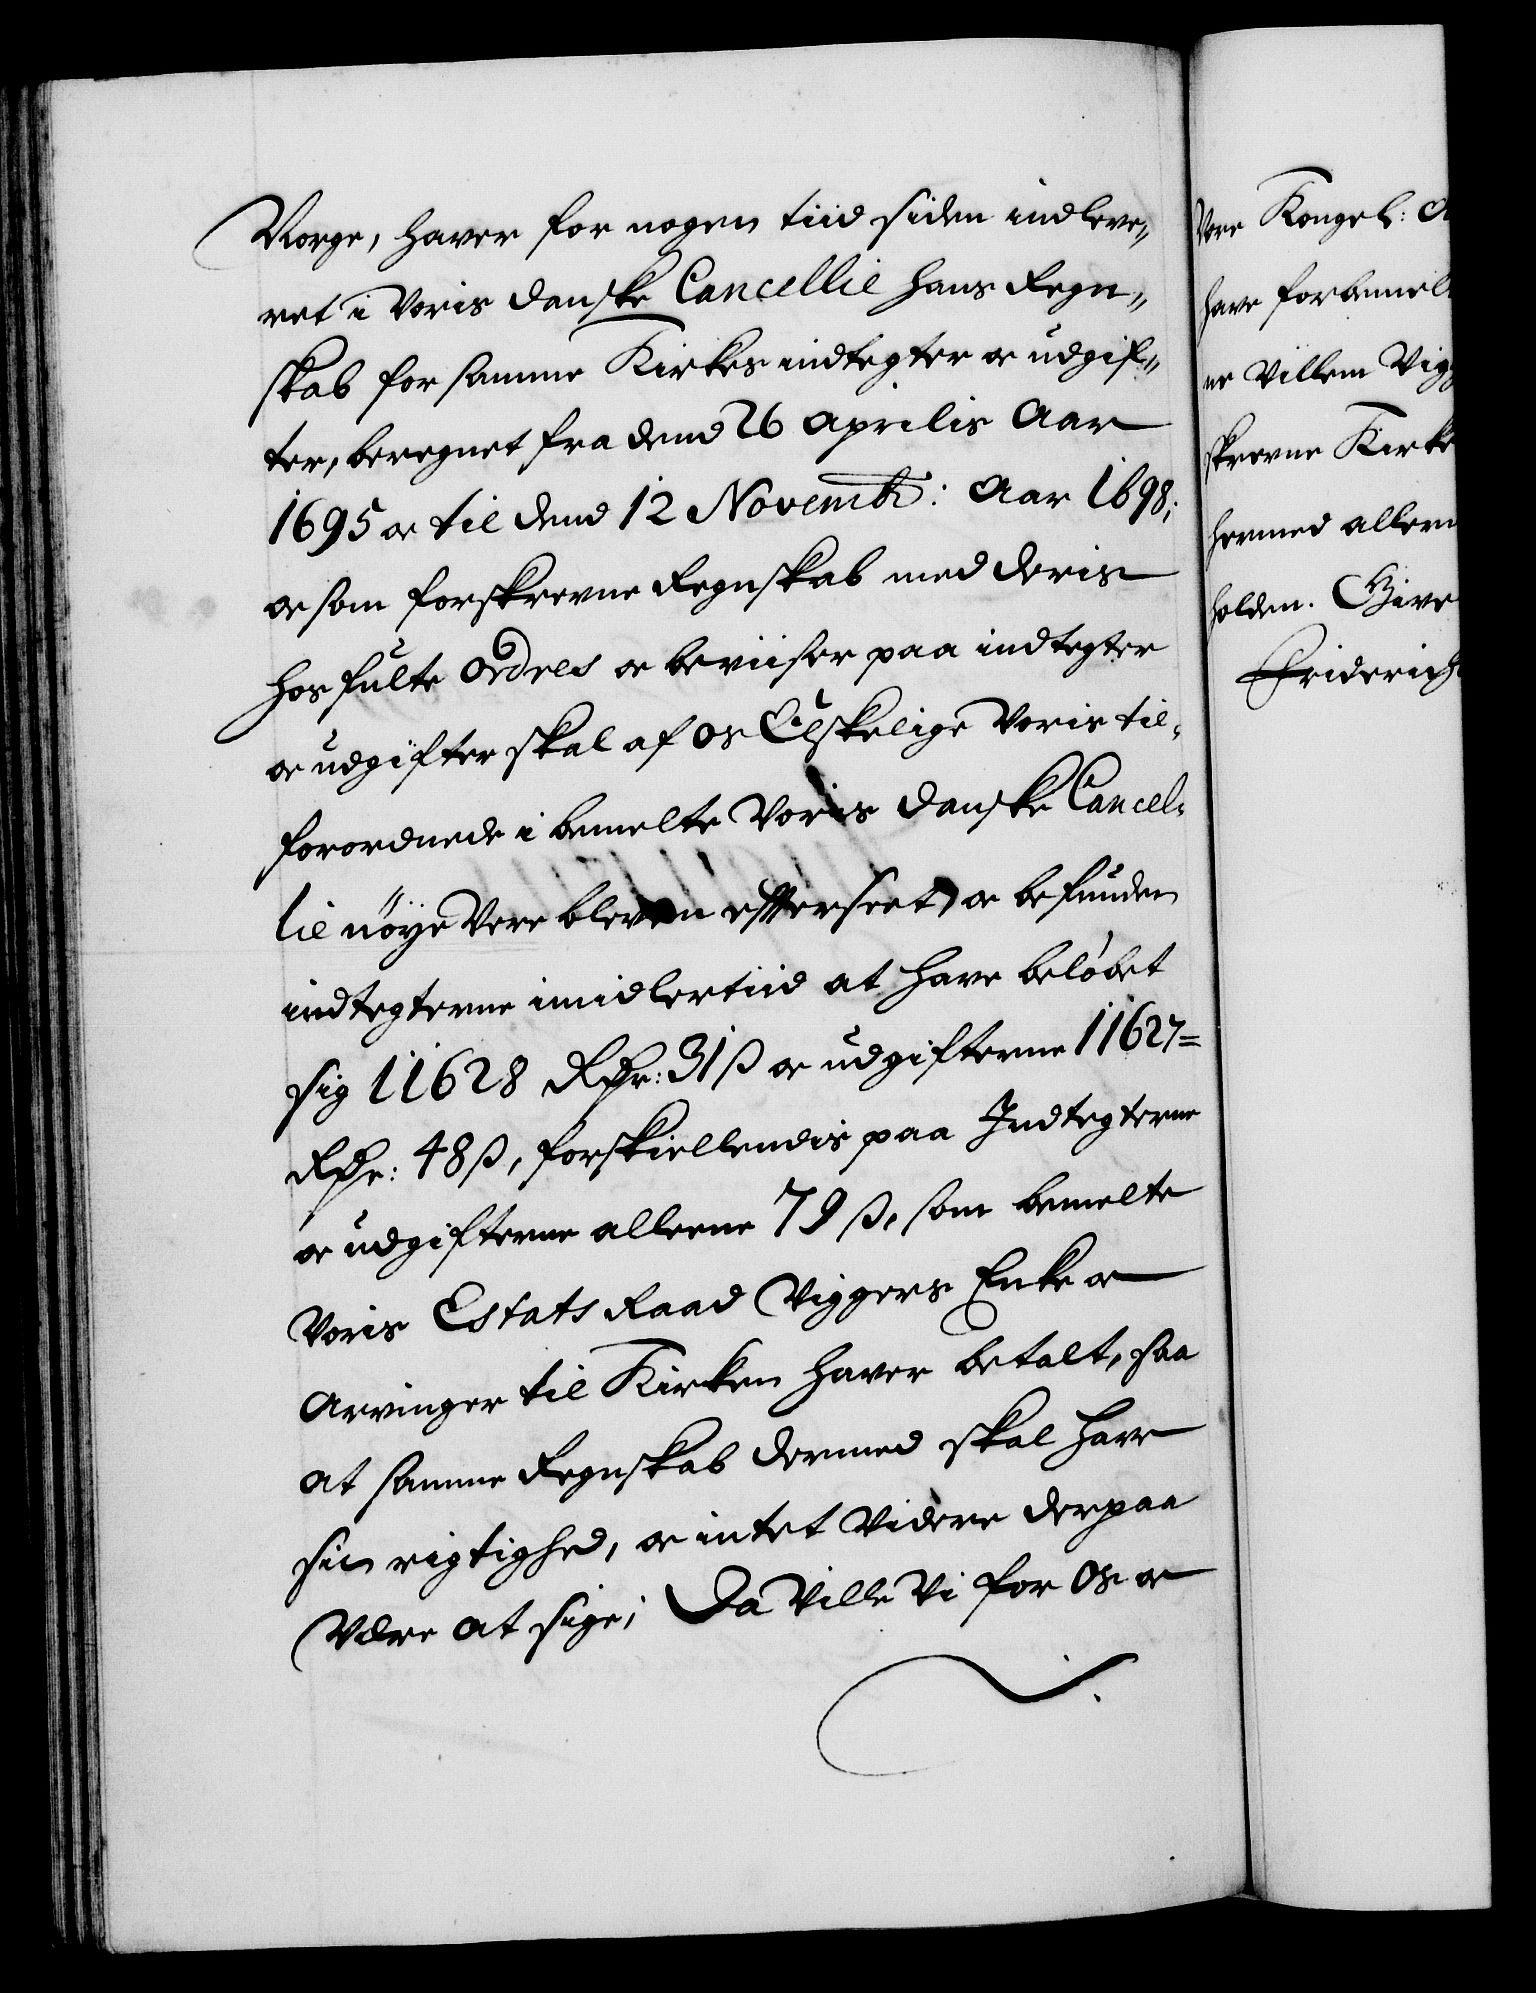 Norge, haver for nogen tiid siden indleve„
ret i Voris danske Cancellie hans Regn„
skab for samme Kirkes indtegter oc udgif„
ter, beregnet fra dend 26 Aprilis Aar
1695 oc til dend 12 Novembr: Aar 1698;
oc som forskrevne Regnskab med deris
hosfulte Ordres oc beviiser paa indtegter
oc udgifter skal af os Elskelige Voris til„
forordnede i bemelte Voris danske Cancel„
lie nöÿe Vere bleven efterseet, oc befunden
indtegterne imidlertiid at have belöbet
sig 11628 Rdr: 31 ß oc udgifterne 11627=
Rdr: 48 ß, forskiellendis paa Indtegterne
oc udgifterne alleene 79 ß, som bemelte
Voris Estats Raad Viggers Enke oc
Arvinger til Kirken haver betalt, saa
at samme Regnskab dermed skal have
sin rigtighed, oc intet Videre derpaa
Være at sige; Da Ville Vi for Os oc
Vore Kongel: A
have forbemel
ne Villem Vigg
skrevne Kirke
hermed allern
holden. Give
Friderichs